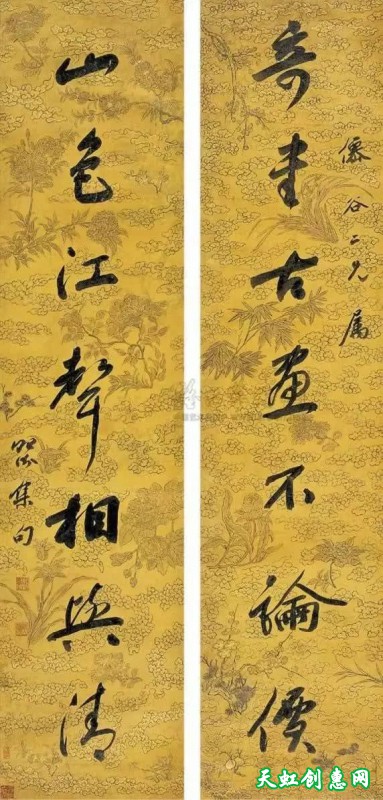 僊谷二兄属
奇書古畫不論價
山色江聲相與清
集句
天虹创惠网